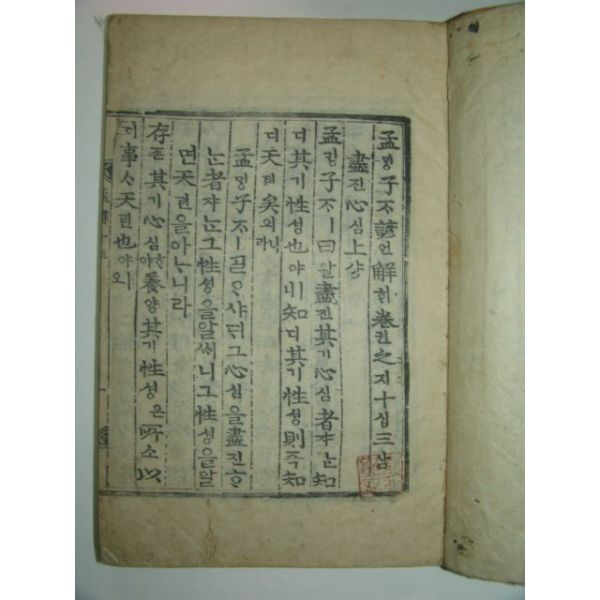 孟밍子ᄌᆞ諺언解ᄒᆡ卷권之지十십三삼
盡진心심上샹
孟밍子ᄌᆞㅣ曰왈盡진其기心심者쟈ᄂᆞᆫ知
디其기性셩也야ㅣ니知디其기性셩則즉知
디天텬矣의니라
孟밍子ᄌᆞㅣᄀᆞᆯᄋᆞ샤ᄃᆡ그心심을盡진ᄒᆞ
ᄂᆞᆫ者쟈ᄂᆞᆫ그性셩을알ᄭᅵ니그性셩을알
면天텬을아ᄂᆞ니라
存존其기心심ᄒᆞ야養양其기性셩은所소以
이事ᄉᆞ天텬也야ㅣ오